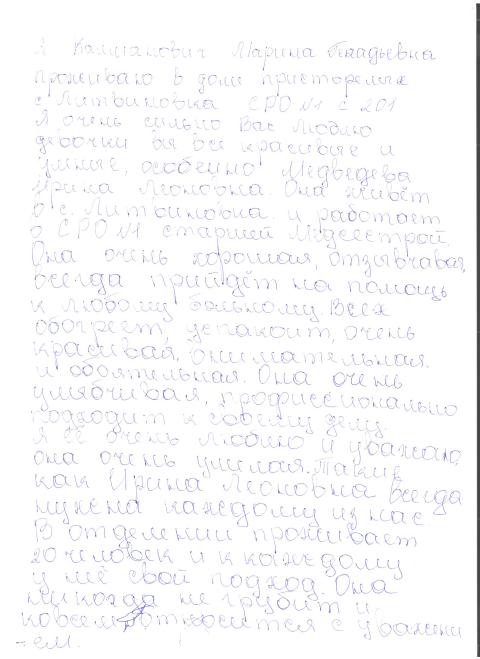 Я Калианович Марина Генадьевна
проживаю в доме пристарелых
с. Литвиновка СРО №1 с 201
Я очень сильно Вас люблю
девочки вы все красивые и
умные, особенно Медведева
Ирина Леоновна. Она живёт
в с. Литвиновка. и работает
в СРО №1 старшей Медсестрой.
Она очень хорошая, отзывчавая,
всегда прийдёт на помощь
к любому больному. Всех
обогреет, успакоит, очень
красивая, внимательная.
и обоятельная. Она очень
улыбчивая, профиссионально
подходит к своему делу.
Я её очень люблю и уважаю,
она очень умилая. Такие
как Ирина Леоновна всегда
нужна каждому из нас
В отделении проживает
20 человек и к каждому
у неё свой подход. Она
никогда не грубит и
ко всем относится с уважени
-ем.